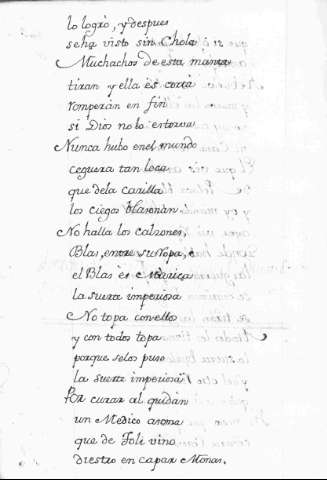 lo logró, y despues
se ha visto sin Chola
Muchachos de esta manta
tiran y ella es corta
romperán en fin
si Dios no lo estorva
Nunca hubo en el mundo
ceguera tan loca
que de la canilla
los ciegos blasonan
No halla los calzones,
Blas, entre su ropa,
el Blas es Marica
la suerra imperiosa
No topa con ellos
y con todos topa
porque se los puso
la suerra imperiosa
Por curar al quidàn
un Medico asoma
que de Foli vino
diestro en capar Monas.